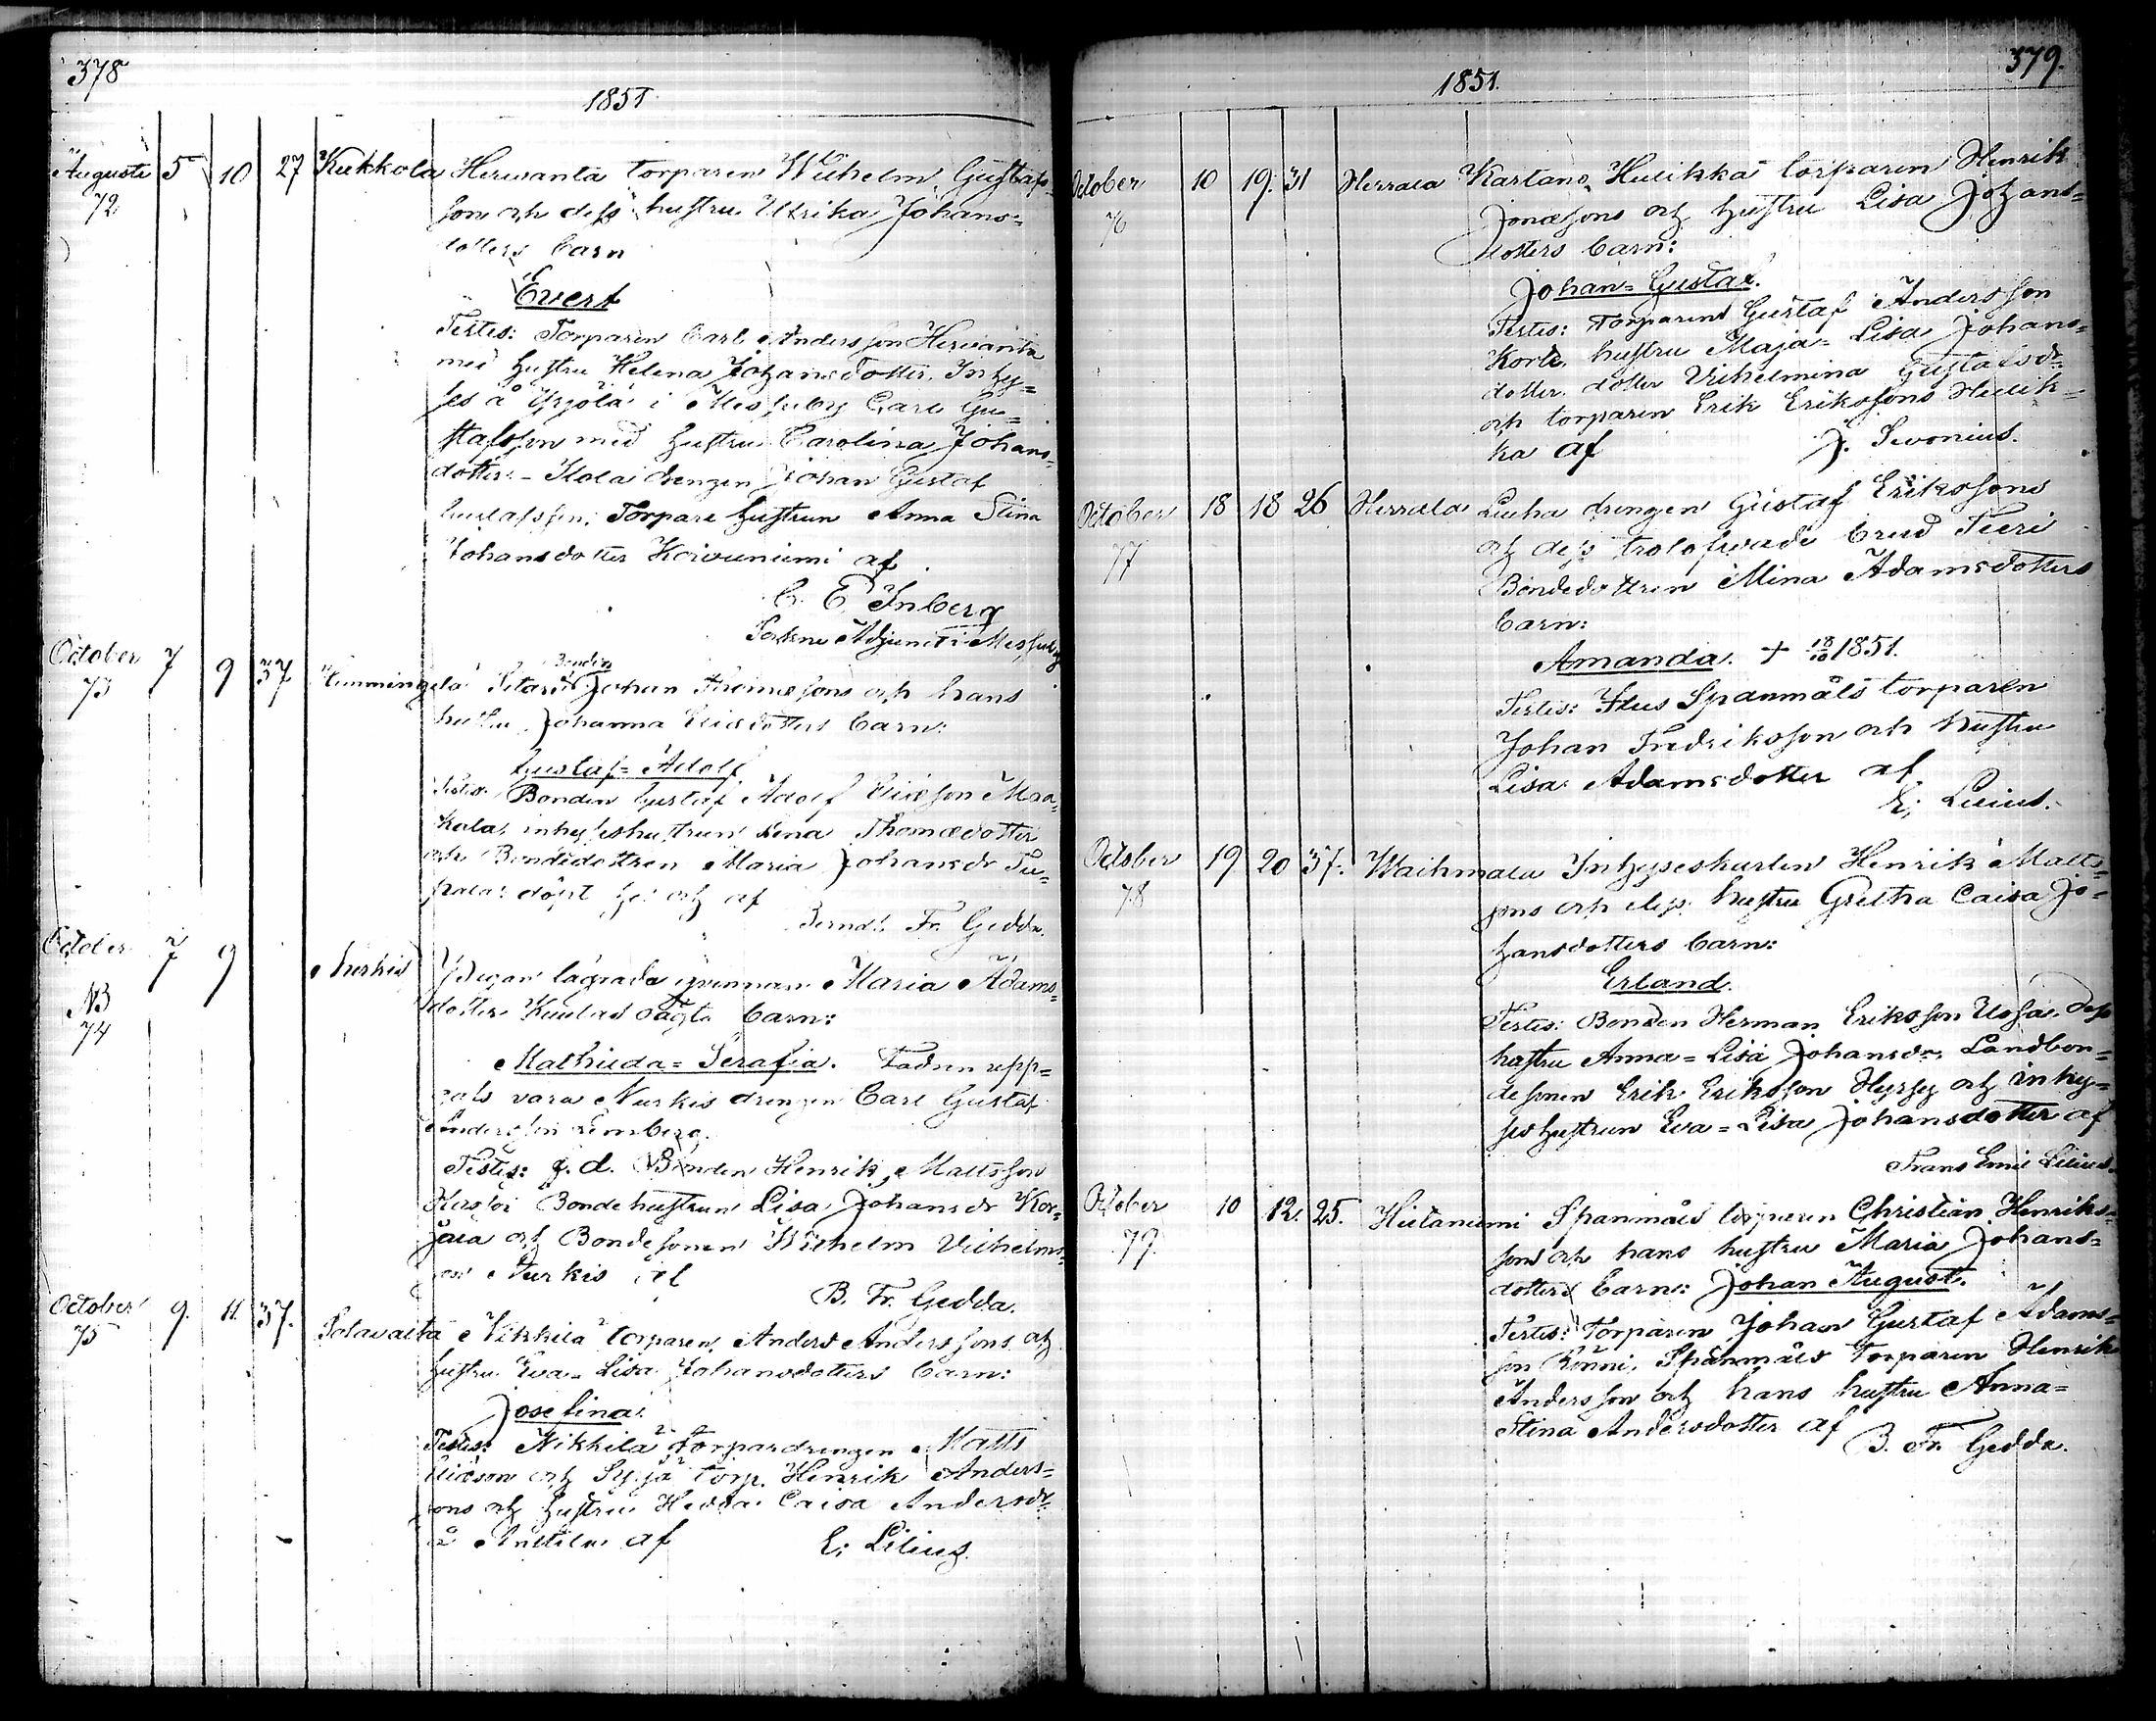 378
1851
Augusti 5 10 27 Kukkola Herwanta torparen Wilhelm Gustafs-
72 son och dess hustru Ulrika Johans-
dotters barn
Evert
Testes: Torparen Carl Andersson Herwanta
med hustru Helena Johansdotter. Inhy-
ses å Yrjölä i Messuby Carl Gu-
stafsson med hustru Carolina Johans-
dotter. - drengen Johan Gustaf
Gustafsson, Torpare hustrun Anna Stina
Johansdotter Koivuniemi af
C. E. Inberg
Adjunct i Messuby
October 7 9 37 Bonden Johan Thomæsons och hans
73 hustru Johanna dotters barn:
Gustaf-Adolf
Testes: Bonden Gustaf Adolf Ericson Maa-
kala, inhyseshustrun Lena Thomædotter
och Bondedottren Maria Johansdr Tu-
pala: döpt af
Bernd. Fr. Gedda.
October 7 9 Nurkis lägrade qvinnan Maria Adams-
NB dotter Kuulas oägta barn:
74
Mathilda-Serafia. Fadren upp-
gafs vara Nurkis drengen Carl Gustaf
Andersson Lemberg.
Testes: f. d. Bonden Henrik Mattsson
Bondehustrun Lisa Johansdr Kor-
och Bondesonen Wilhelm Vilhelms-
son Nurkis af
B. Fr. Gedda.
October 9. 11. 37. Salavalta Nikkilä torparen Anders Anderssons och
75 hustru Eva-Lisa Johansdotters barn:
Josefina.
Testes: Nikkilä Torpardrengen Matts
Ericson och torp. Henrik Anders-
sons och hustru Hedda Caisa Andersdr
å Anttila af E: Lilius.
379.
1851.
October 10 19. 31 Herrala Kartano, Hulikka torparen Henrik
76 Jonæsons och hustru Lisa Johans-
dotters barn:
Johan-Gustaf.
Testes: Torparen Gustaf Andersson
Korte, hustru Maja-Lisa Johans-
dotter, dotter Vilhelmina Gustafsdr
och torparen Erik Erikssons Hulik-
ka af J. Sevonius.
October 18 18 26 Herrala Liuha drengen Gustaf Erikssons
77 och dess trolofwade brud Tieri
Bondedottren Mina Adamsdotters
barn:
Amanda. + 18/10 1851.
Testes: Spanmåls torparen
Johan Fredriksson och hustru
Lisa Adamsdotter af
E; Lilius.
October 19 20 37. Waihmala Inhyseskarlen Henrik Matts-
78 sons och dess hustru Gretha Caisa Jo-
hansdotters barn:
Erland.
Testes: Bonden Herman Eriksson Uossa, dess
hustru Anna-Lisa Johansdr, Landbon-
desonen Erik Eriksson Hyrsy och inhy-
seshustrun Eva-Lisa Johansdotter af
Frans Emil Lilius
October 10 12. 25. Hietaniemi Spanmåls torparen Christian Henriks-
79. son och hans hustru Maria Johans-
dotters barn: Johan August.
Testes: Torparen Johan Gustaf Adams-
son Rönni, Spanmåls Torparen Henrik
Andersson och hans hustru Anna-
Stina Andersdotter af
B. Fr. Gedda.